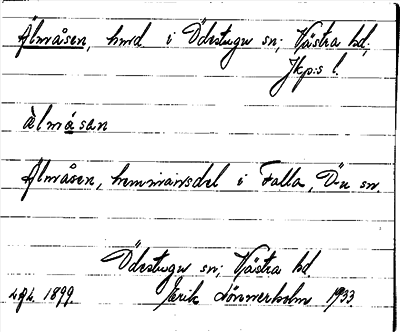 Älmåsen, hmd i Ödestugu sn; Västra hd;
Jkp:s l.
älmåsan
Älmåsen, hemmansdel i Falla, Ö-u sn.
Ödestugu sn; Västra hd.
1899. Jarik Lönnerholm 1933